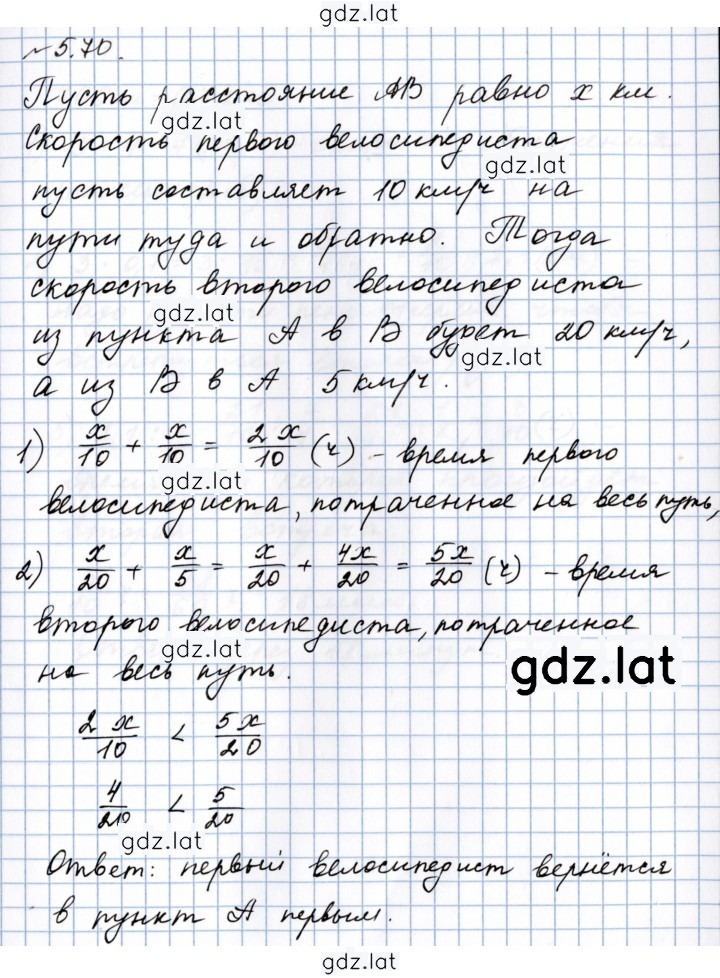 gdz.lat
№ 5.70.
Пусть расстояние AB равно x км.
gdz.lat
Скорость первого велосипедиста
gdz.lat
пусть составляет 10 км/ч на
пути туда и обратно. Тогда
скорость второго велосипедиста
gdz.lat
из пункта A в B будет 20 км/ч,
gdz.lat
а из B в A 5 км/ч.
1) x/10 + x/10 = 2x/10 (ч) - время первого
gdz.lat
велосипедиста, потраченное на весь путь,
2) x/20 + x/5 = x/20 + 4x/20 = 5x/20 (ч) - время
второго велосипедиста, потраченное
gdz.lat
на весь путь.
gdz.lat
2x/10 < 5x/20
4/20 < 5/20
gdz.lat
Ответ: первый велосипедист вернётся
gdz.lat
в пункт A первым.
gdz.lat